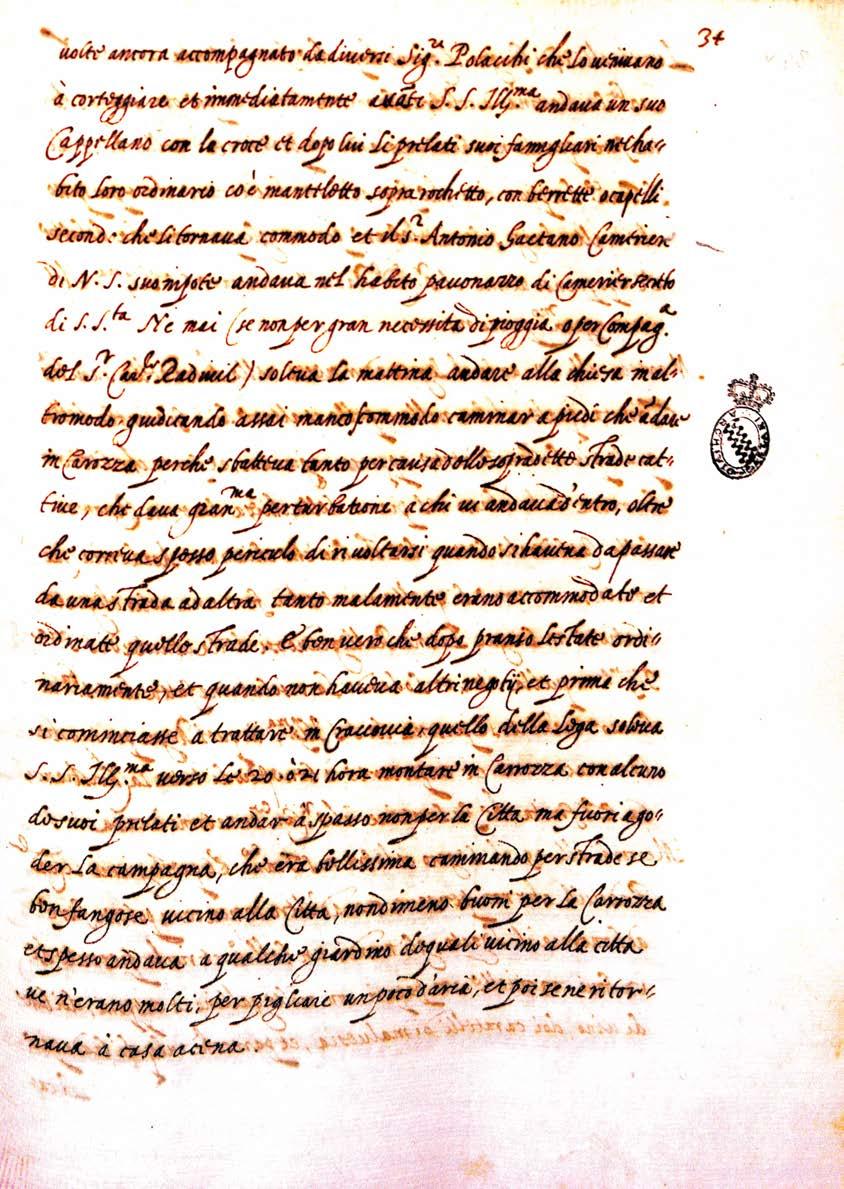 34
volte ancora accompagnato da diversi Sig.ri Polacchi che lo venivano
à corteggiare et immediatamente avāti S. S. Ill.ma andava un suo
Cappellano con la croce et dopo lui li prelati suoi famigliari nel ha-
bito loro ordinario cõ è manteletto sopra rochetto, con berrette o capelli
secondo che li tornava commodo et il s.r Antonio Gaetano Camerier
di N. S. suo nipote andava nel habito pavonazzo di Camerier
di S. S.ta Ne mai (se non per gran necessità di pioggia o per Compag.a
del S.r Car.le Radivil) soleva la mattina andare alla chiesa in al-
tro modo giudicando assai manco scommodo caminar a piedi che ādare
in Carozza perche sbatteva tanto per causa delle sopradette strade cat-
tive, che dava gran.ma perturbatione a chi vi andava d'entro, oltre
che correva spesso pericolo di rivoltarsi quando si haveva da passare
da una strada ad altra tanto malamente erano accommodate et
ordinate quelle strade. È ben vero che dopo pranso l'estate ordi-
nariamente, et quando non haveva altri negotij, et prima che
si cominciasse a trattare in Craccovia quello della Lega soleva
S. S. Ill.ma verso le 20 ò 21 hora montare in Carrozza con alcuno
de suoi prelati et andar à spasso non per la Città ma fuori a go-
der la campagna, che era bellissima caminando per strade se
ben fangose vicino alla Città, nondimeno buoni per la Carrozza
et spesso andava a qualche giardino de quali vicino alla città
ve n'erano molti, per pigliare un poco d'aria, et poi se ne ritor-
nava à casa a cena.